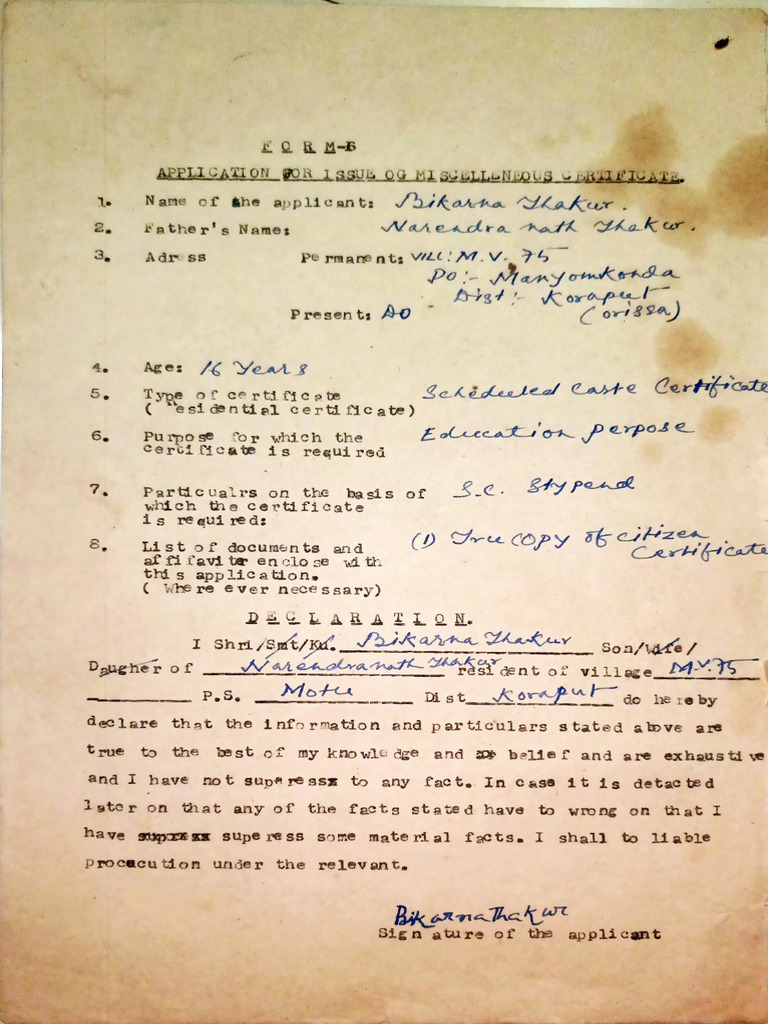 F O R M-6
APPLICATION FOR ISSUE OG MISCELLENEOUS CERTIFICATE.
1. Name of the applicant: Bikarna Thakur.
2. Father's Name: Narendra nath Thakur.
3. Adress Permanent: VILL: M.V. 75
PO:- Manyomkonda
Dist:- Koraput
(orissa)
Present: DO
4. Age: 16 Years
5. Type of certificate Scheduled Caste Certificate
( Residential certificate)
6. Purpose for which the Education perpose
certificate is required
7. Particualrs on the basis of S.C. Stypend
which the certificate
is required:
8. List of documents and (1) True copy of citizen
affifavite enclose with Certificate
this application.
( Where ever necessary)
D E C L A R A T I O N.
I Shri/Smt/Ku. Bikarna Thakur Son/Wife/
Daugher of Narendranath Thakur resident of village M.V. 75
P.S. Motu Dist Koraput do hereby
declare that the information and particulars stated above are
true to the best of my knowledge and belief and are exhaustive
and I have not superess to any fact. In case it is detacted
later on that any of the facts stated have to wrong on that I
have superess some material facts. I shall to liable
procecution under the relevant.
Bikarna Thakur
Sign ature of the applicant